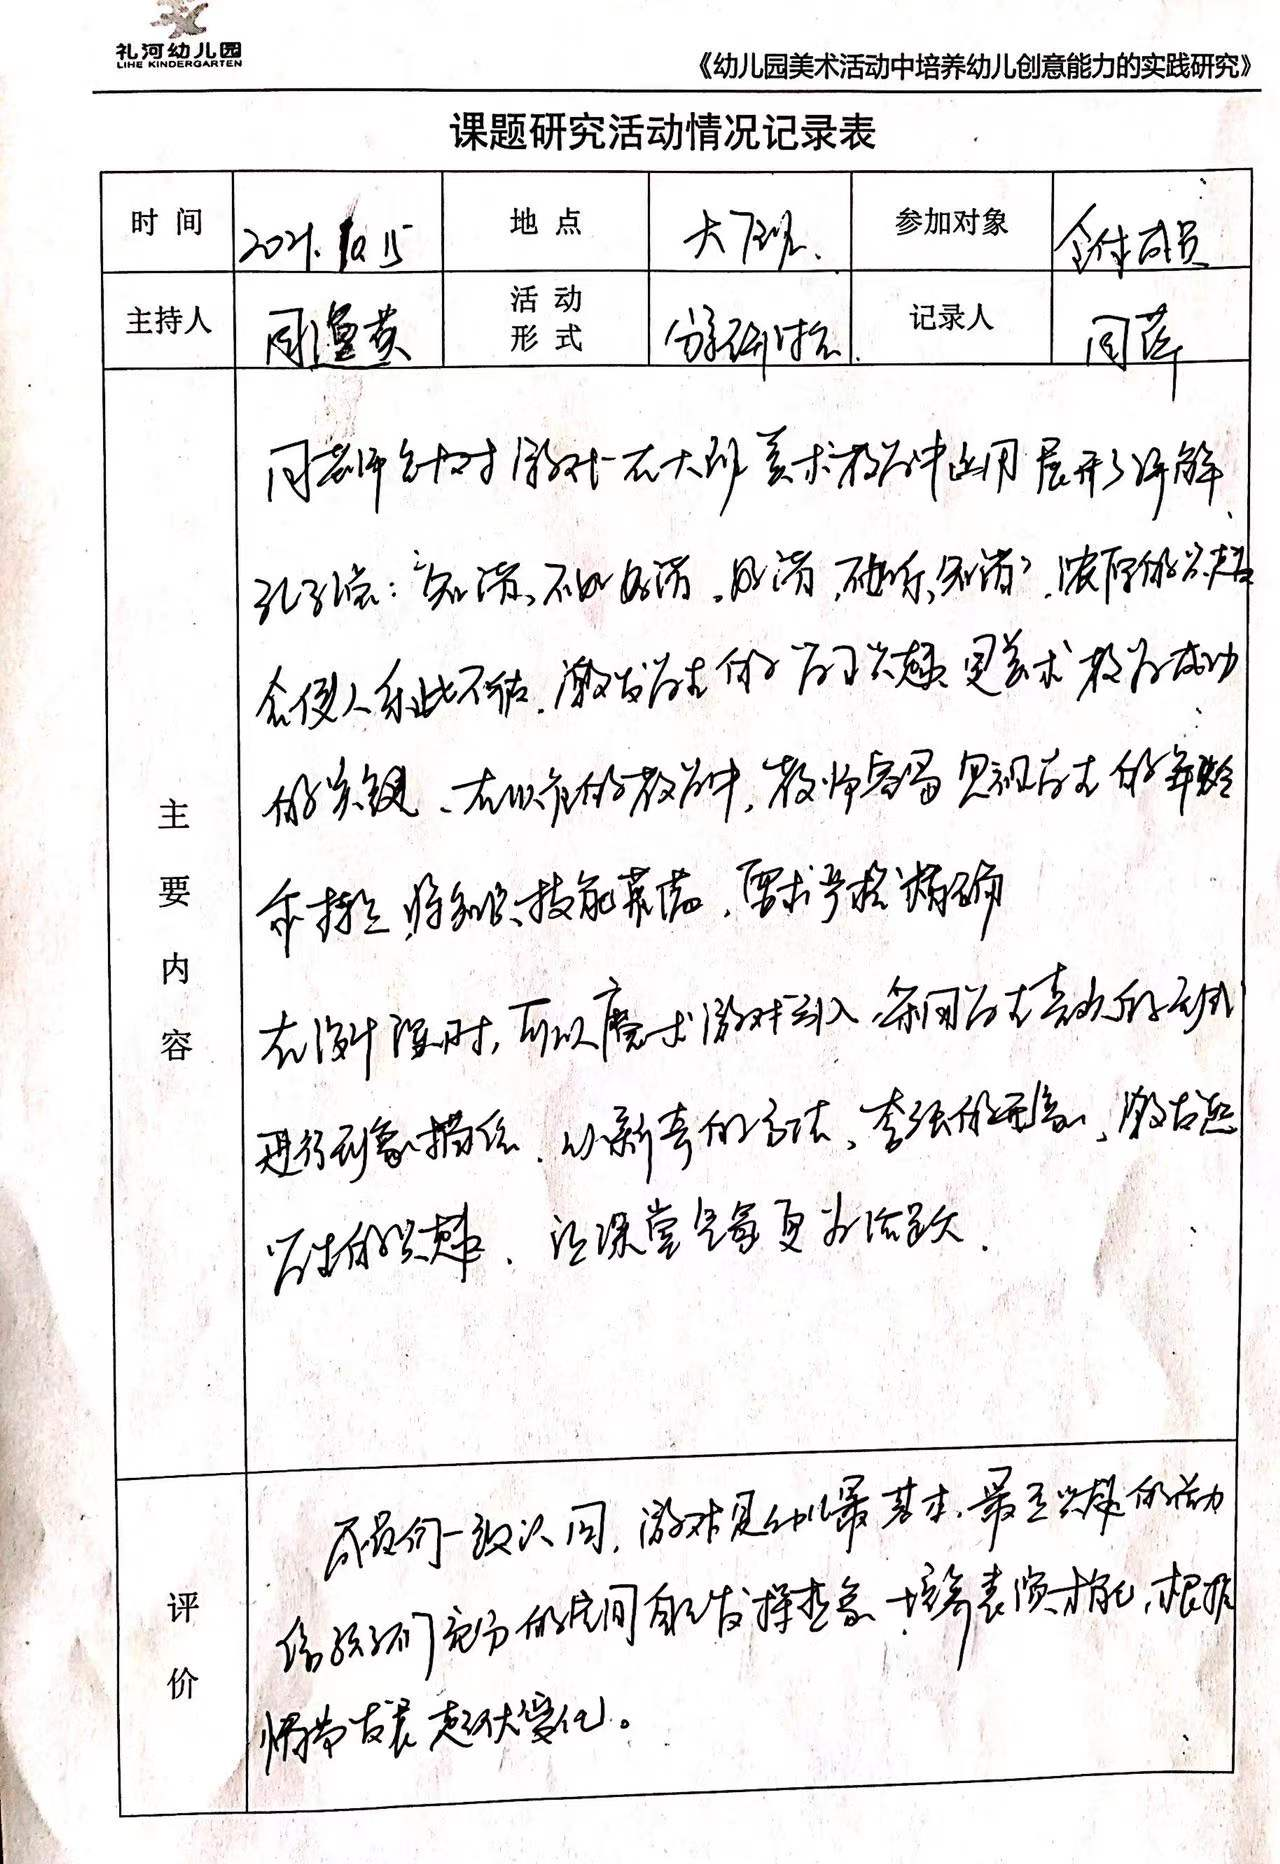 礼河幼儿园
LIHE KINDERGARTEN
《幼儿园美术活动中培养幼儿创意能力的实践研究》
课题研究活动情况记录表
时 间 2021.10.15 地 点 大 班 参加对象 全体成员
主持人 周 黄 活 动 形 式 研讨 记录人 周萍
主要内容
周老师针对游戏在大班美术教学中运用展开了讲解
孔子说:“知之者不如好之者,好之者不如乐之者”,浓厚的兴趣
会使人乐此不疲,激发学生的学习兴趣是美术教学成功
的关键、在以往的教学中,教师容易忽视学生的年龄
特点,将知识技能灌输,要求严格精确
在设计课时,可以魔术游戏引入,采用学生喜欢的形式
进行形象描绘,以新奇的方法、夸张的形象,激发起
学生的兴趣,让课堂气氛更为活跃.
评价
成员们一致认同,游戏是幼儿最基本,最感兴趣的活动
给孩子们充分的空间自己发挥想象,培养表演才能,根据
情节发展起伏变化。